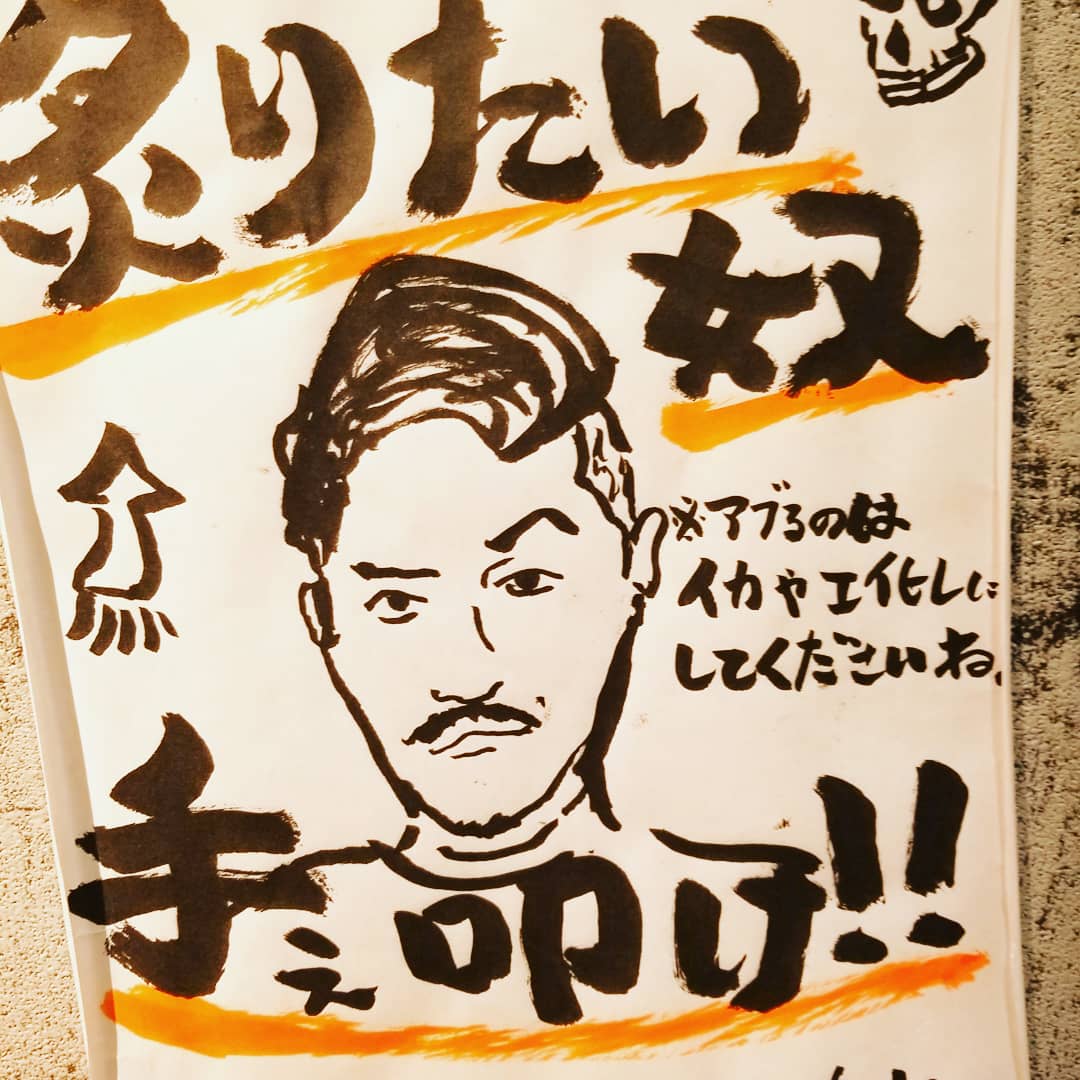 炙りたい
奴
※アブるのは
イカやエイヒレに
してくださいね。
手ぇ叩け!!